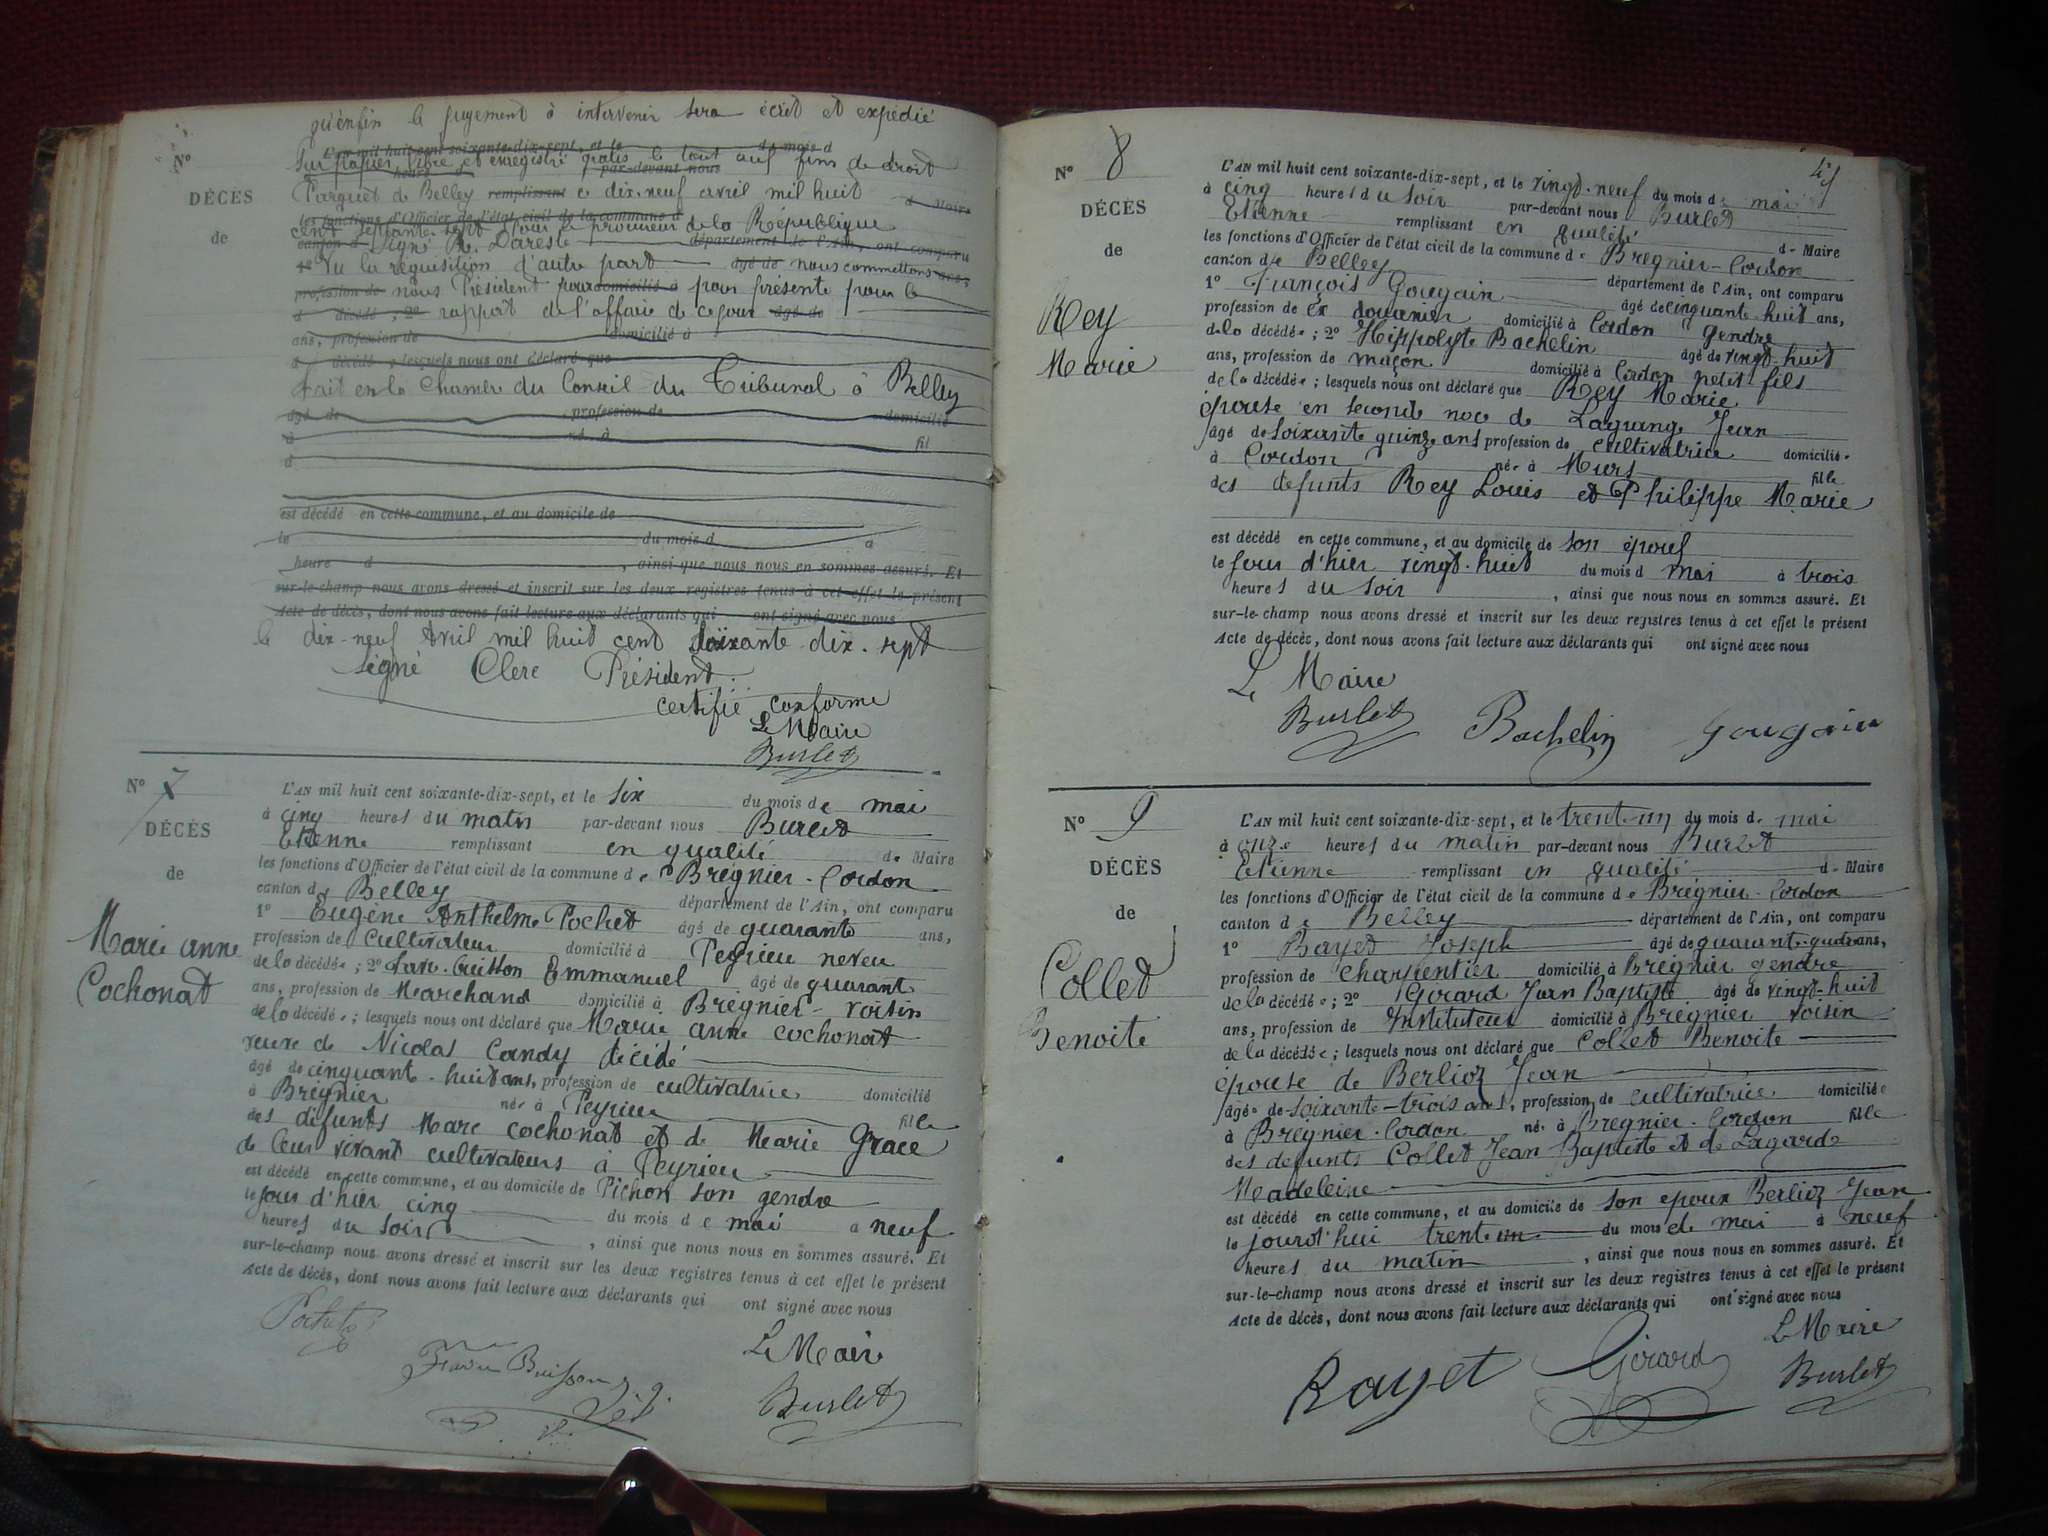 qu'enfin le jugement à intervenir sera écrit et expédié
Nº
L'an mil huit cent soixante-dix-sept, et le du mois d
sur papier libre et enregistré gratis le tout aux fins de droit
heure par-devant nous
DÉCÈS
Parquet de Belley remplissant ce dix-neuf avril mil huit
d Maire
les fonctions d'Officier de l'état civil de la commune d
cent septante sept pour le procureur de la République
de
canton d Signé R. Dareste département de l'Ain, ont comparu
1º Vu la réquisition d'autre part âgé de nous commettons ans,
profession de nous Président pour domicilié à pour présente pour le
d décédé ; 2º rapport de l'affaire de ce jour âgé de
ans, profession de domicilié à
d décédé ; lesquels nous ont déclaré que
fait en la Chamer du Conseil du Tribunal à Belley
âgé de profession de domicilié
à né à fil
d
est décédé en cette commune, et au domicile de
le du mois d à
heure d , ainsi que nous nous en sommes assuré. Et
sur-le-champ nous avons dressé et inscrit sur les deux registres tenus à cet effet le présent
Acte de décès, dont nous avons fait lecture aux déclarants qui ont signé avec nous
le dix-neuf Avril mil huit cent soixante dix-sept
signé Clerc Président.
certifié conforme
Le Maire
Burlet
Nº 7
DÉCÈS
de
Marie anne
Cochonat
L'AN mil huit cent soixante-dix-sept, et le six du mois de mai
à cinq heures du matin par-devant nous Burlet
Etienne remplissant en qualité de Maire
les fonctions d'Officier de l'état civil de la commune de Brégnier-Cordon
canton de Belley département de l'Ain, ont comparu
1º Eugène Anthelme Pochet âgé de quarante ans,
profession de cultivateur domicilié à Peyrieu neveu
de la décédée ; 2º Buisson Emmanuel âgé de quarant
ans, profession de Marchand domicilié à Brégnier voisin
de la décédée ; lesquels nous ont déclaré que Marie anne cochonat
veuve de Nicolas Candy décédé
âgé de cinquant-huit ans, profession de cultivatrice domicilié
à Brégnier née à Peyrieu fille
des défunts Marc cochonat et de Marie Grace
de leur vivant cultivateurs à Peyrieu
est décédé en cette commune, et au domicile de Pichon son gendre
le jour d'hier cinq du mois de mai à neuf
heures du soir , ainsi que nous nous en sommes assuré. Et
sur-le-champ nous avons dressé et inscrit sur les deux registres tenus à cet effet le présent
Acte de décès, dont nous avons fait lecture aux déclarants qui ont signé avec nous
Pochet
Le Maire
Buisson
Burlet
Nº 8
DÉCÈS
de
Rey
Marie
L'AN mil huit cent soixante-dix-sept, et le vingt-neuf du mois de mai
à cinq heures du soir par-devant nous Burlet
Etienne remplissant en qualité de Maire
les fonctions d'Officier de l'état civil de la commune de Brégnier-Cordon
canton de Belley département de l'Ain, ont comparu
1º François Gougain âgé de cinquante-huit ans,
profession de ex douanier domicilié à Cordon gendre
de la décédée ; 2º Hippolyte Bachelin âgé de vingt-huit
ans, profession de maçon domicilié à Cordon petit fils
de la décédée ; lesquels nous ont déclaré que Rey Marie
épouse en seconde noce de Lagrange Jean
âgé de soixante quinze ans profession de cultivatrice domiciliée
à Cordon née à Murs fille
des defunts Rey Louis et Philippe Marie
est décédé en cette commune, et au domicile de son épous
le jour d'hier vingt-huit du mois d mai à trois
heures du soir , ainsi que nous nous en sommes assuré. Et
sur-le-champ nous avons dressé et inscrit sur les deux registres tenus à cet effet le présent
Acte de décès, dont nous avons fait lecture aux déclarants qui ont signé avec nous
Le Maire
Burlet Bachelin Gougain
Nº 9
DÉCÈS
de
Collet
Benoite
L'AN mil huit cent soixante-dix-sept, et le trent-un du mois de mai
à onze heures du matin par-devant nous Burlet
Etienne remplissant en qualité de Maire
les fonctions d'Officier de l'état civil de la commune de Brégnier-Cordon
canton de Belley département de l'Ain, ont comparu
1º Bayet Joseph âgé de quarant-quatre ans,
profession de charpentier domicilié à Brégnier gendre
de la décédée ; 2º Girard Jean Baptiste âgé de vingt-huit
ans, profession de Instituteur domicilié à Brégnier voisin
de la décédée ; lesquels nous ont déclaré que Collet Benoite
épouse de Berlioz Jean
âgée de soixante-trois ans, profession de cultivatrice domiciliée
à Brégnier-Cordon née à Brégnier-Cordon fille
des defunts Collet Jean Baptiste et de Lagarde
Madeleine
est décédé en cette commune, et au domicile de son epoux Berlioz Jean
le jourd'hui trent un du mois de mai à neuf
heures du matin , ainsi que nous nous en sommes assuré. Et
sur-le-champ nous avons dressé et inscrit sur les deux registres tenus à cet effet le présent
Acte de décès, dont nous avons fait lecture aux déclarants qui ont signé avec nous
Le Maire
Bayet Girard Burlet